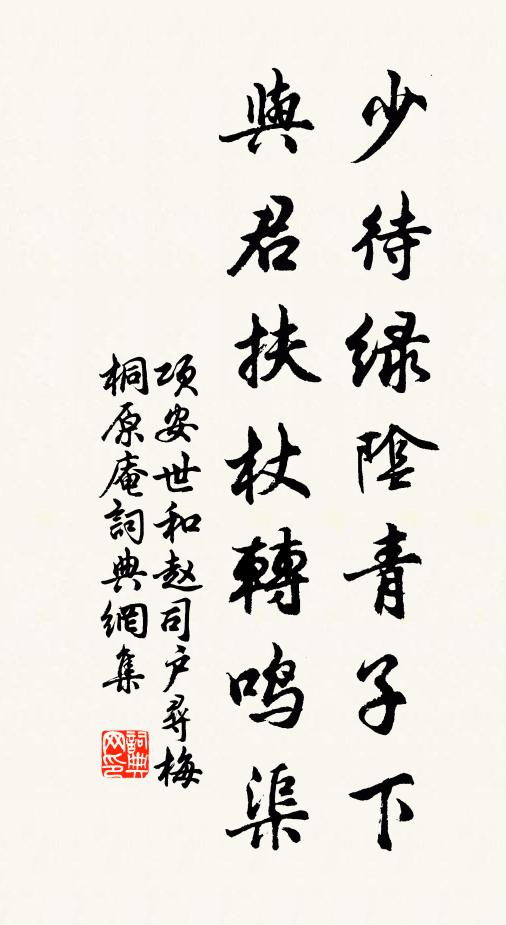 少待緑陰青子下
與君扶杖轉鳴渠
項安世和赵司户尋梅
桐原庵詞典網集
詞典網印